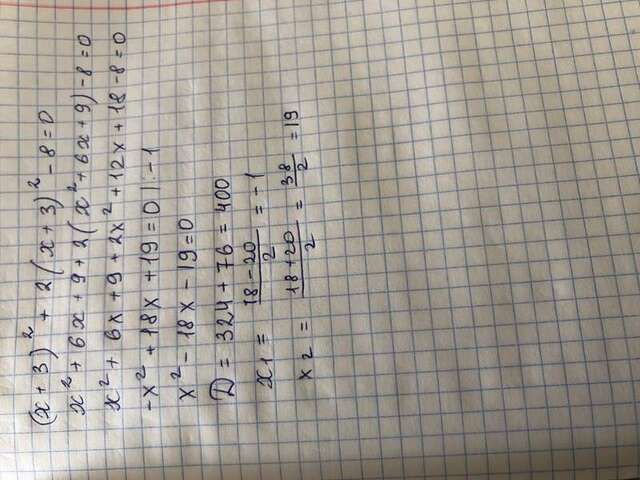 (x + 3)² + 2(x + 3)² - 8 = 0
x² + 6x + 9 + 2(x² + 6x + 9) - 8 = 0
x² + 6x + 9 + 2x² + 12x + 18 - 8 = 0
-x² + 18x + 19 = 0 | : -1
x² - 18x - 19 = 0
D = 324 + 76 = 400
x₁ = (18 - 20)/2 = -1
x₂ = (18 + 20)/2 = 38/2 = 19